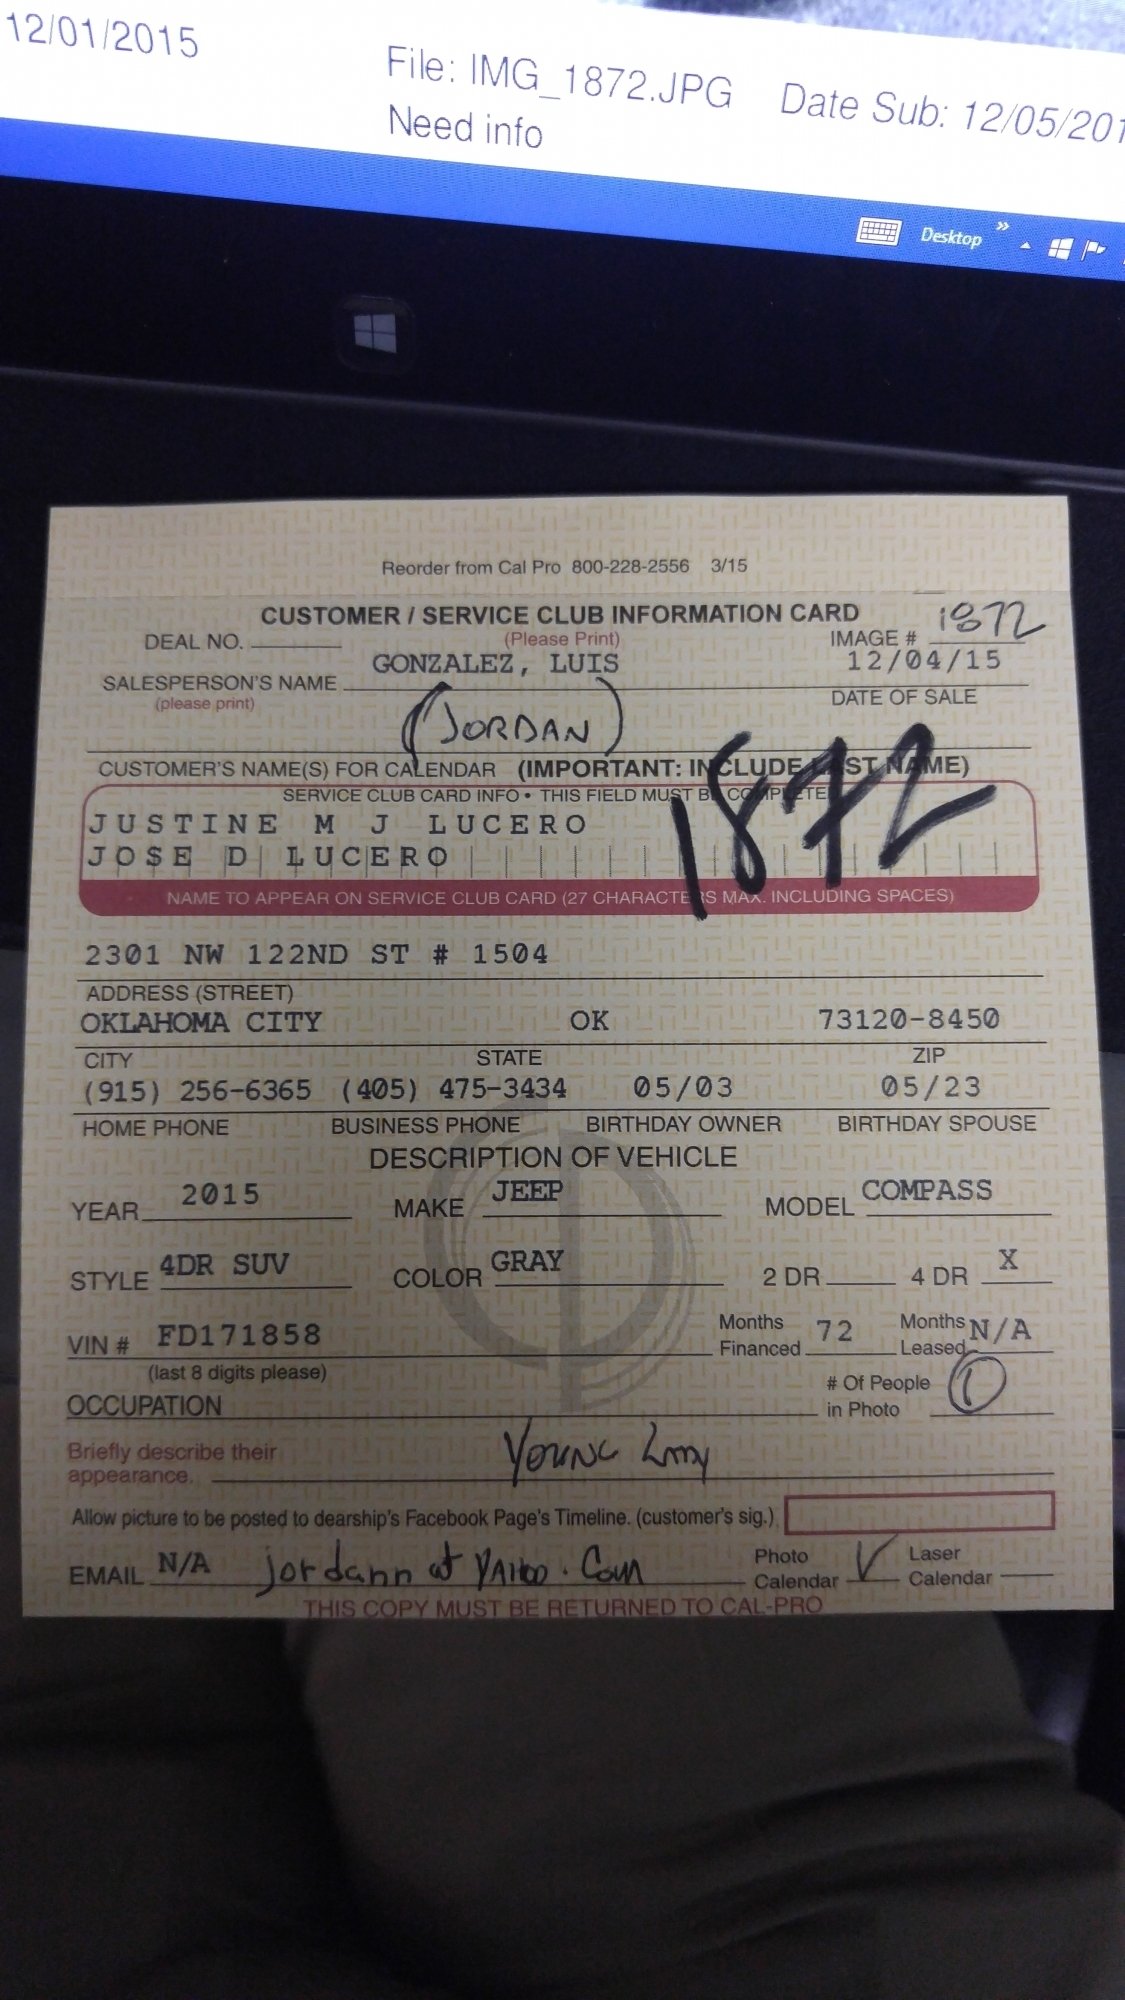 12/01/2015
File: IMG_1872.JPG Date Sub: 12/05/201
Need info
Desktop
Reorder from Cal Pro 800-228-2556 3/15
CUSTOMER / SERVICE CLUB INFORMATION CARD
DEAL NO. (Please Print) IMAGE # 1872
GONZALEZ, LUIS 12/04/15
SALESPERSON'S NAME DATE OF SALE
(please print)
(JORDAN)
1872
CUSTOMER'S NAME(S) FOR CALENDAR (IMPORTANT: INCLUDE LAST NAME)
SERVICE CLUB CARD INFO • THIS FIELD MUST BE COMPLETE
JUSTINE M J LUCERO
JOSE D LUCERO
NAME TO APPEAR ON SERVICE CLUB CARD (27 CHARACTERS MAX. INCLUDING SPACES)
2301 NW 122ND ST # 1504
ADDRESS (STREET)
OKLAHOMA CITY OK 73120-8450
CITY STATE ZIP
(915) 256-6365 (405) 475-3434 05/03 05/23
HOME PHONE BUSINESS PHONE BIRTHDAY OWNER BIRTHDAY SPOUSE
DESCRIPTION OF VEHICLE
YEAR 2015 MAKE JEEP MODEL COMPASS
STYLE 4DR SUV COLOR GRAY 2 DR 4 DR X
VIN # FD171858 Months Financed 72 Months Leased N/A
(last 8 digits please)
OCCUPATION # Of People in Photo 1
Briefly describe their
appearance. YOUNG
Allow picture to be posted to dearship's Facebook Page's Timeline. (customer's sig.)
EMAIL N/A jordann at YAHOO.Com Photo Calendar Laser Calendar
THIS COPY MUST BE RETURNED TO CAL-PRO